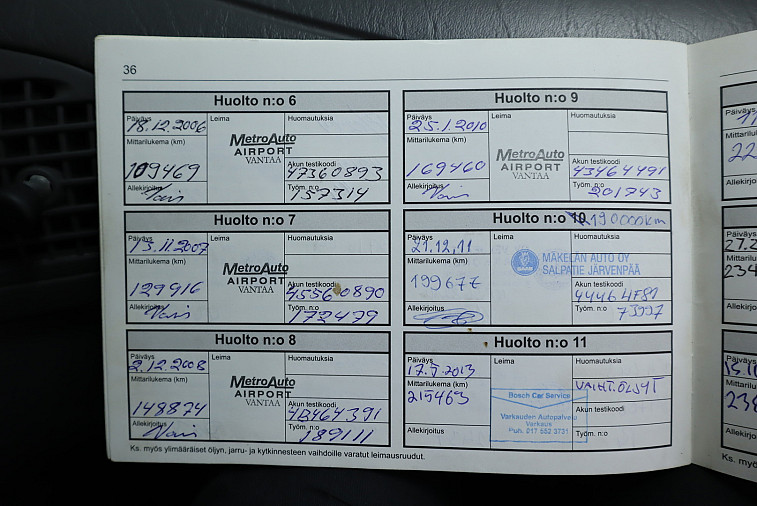 36
Huolto n:o 6
Päiväys
Leima
Huomautuksia
18.12.2006
Mittarilukema (km)
MetroAuto
AIRPORT
VANTAA
109469
Akun testikoodi
47360893
Allekirjoitus
Työm. n:o
157314
Huolto n:o 7
Päiväys
Leima
Huomautuksia
13.11.2007
Mittarilukema (km)
MetroAuto
AIRPORT
VANTAA
129916
Akun testikoodi
45560890
Allekirjoitus
Työm. n:o
172479
Huolto n:o 8
Päiväys
Leima
Huomautuksia
2.12.2008
Mittarilukema (km)
MetroAuto
AIRPORT
VANTAA
148874
Akun testikoodi
4B464391
Allekirjoitus
Työm. n:o
189111
Huolto n:o 9
Päiväys
Leima
Huomautuksia
25.1.2010
Mittarilukema (km)
MetroAuto
AIRPORT
VANTAA
169460
Akun testikoodi
43464491
Allekirjoitus
Työm. n:o
201743
Huolto n:o 10 190000km
Päiväys
Leima
Huomautuksia
21.12.11
Mittarilukema (km)
SAAB
MÄKELÄN AUTO OY
SALPATIE JÄRVENPÄÄ
Akun testikoodi
4446HF81
Allekirjoitus
Työm. n:o
73997
Huolto n:o 11
Päiväys
Leima
Huomautuksia
17.5.2013
VAIHT.ÖLJYT
Mittarilukema (km)
215463
Bosch Car Service
Varkauden Autopalvelu
Varkaus
Puh. 017 552 3731
Akun testikoodi
Allekirjoitus
Työm. n:o
Ks. myös ylimääräiset öljyn, jarru- ja kytkinnesteen vaihdoille varatut leimausruudut.
Päiväys
Mittarilukema
22
Allekirjoitus
Päiväys
27.2
Mittarilukema
234
Allekirjoitus
Päiväys
Mittarilukema
Allekirjoitus
Ks. myös